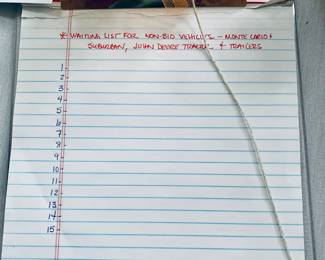 * WAITING LIST FOR NON-BID VEHICLES - MONTE CARLO &
SUBURBAN, JOHN DEERE TRACTOR & TRAILERS
1-
2-
3-
4-
5-
6-
7-
8-
9-
10-
11-
12-
13-
14-
15-